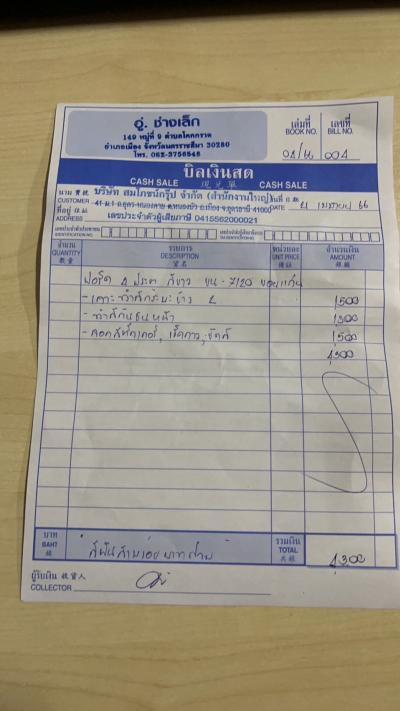 อู่. ช่างเล็ก
149 หมู่ที่ 9 ตำบลโคกกรวด
อำเภอเมือง จังหวัดนครราชสีมา 30280
โทร. 062-3756545
เล่มที่ เลขที่
BOOK NO. BILL NO.
04/66 004
บิลเงินสด
CASH SALE 現兌單 CASH SALE
นาม 寶號 บริษัท สมโภชน์กรุ๊ป จำกัด (สำนักงานใหญ่) วันที่
CUSTOMER 41 ม.1 ถ.อุดร-หนองคาย ต.หนองบัว อ.เมือง จ.อุดรธานี 41000 DATE 21 เมษายน 66
ที่อยู่
ADDRESS เลขประจำตัวผู้เสียภาษี 0415562000021
จำนวน รายการ หน่วยละ จำนวนเงิน
QUANTITY DESCRIPTION UNIT PRICE AMOUNT
數量 貨名 備註 銀額
ฟอร์ด 4 ประตู สีขาว ขน-7120 ขอนแก่น
- เคาะ ทำสีกระบะข้าง L 1,500
- ทำสีกันชนหน้า 1,300
- ลอกสติ๊กเกอร์, เช็ดกาว, ขัดสี 1,500
4,300
บาท รวมเงิน
BAHT สี่พันสามร้อยบาทถ้วน TOTAL 4,300
銖 共銀
ผู้รับเงิน 收貨人
COLLECTOR